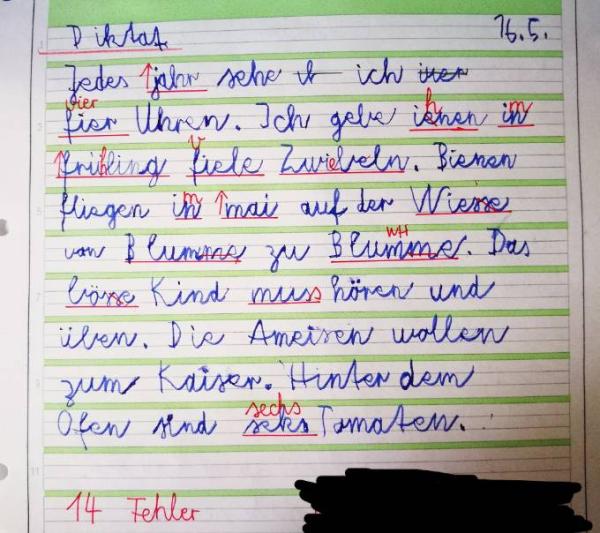 Diktat 16.5.
Jedes ↑jahr sehe ich
vier
fier Uhren. Ich gebe ienen in
h m
↑früling fiele Zwiebeln. Bienen
v
fliegen in ↑mai auf der Wiesse
m
von Blumme zu Blumme. Das
WH
bösse Kind muss hören und
üben. Die Ameisen wollen
zum Kaiser. Hinter dem
sechs
Ofen sind seks Tomaten.
14 Fehler